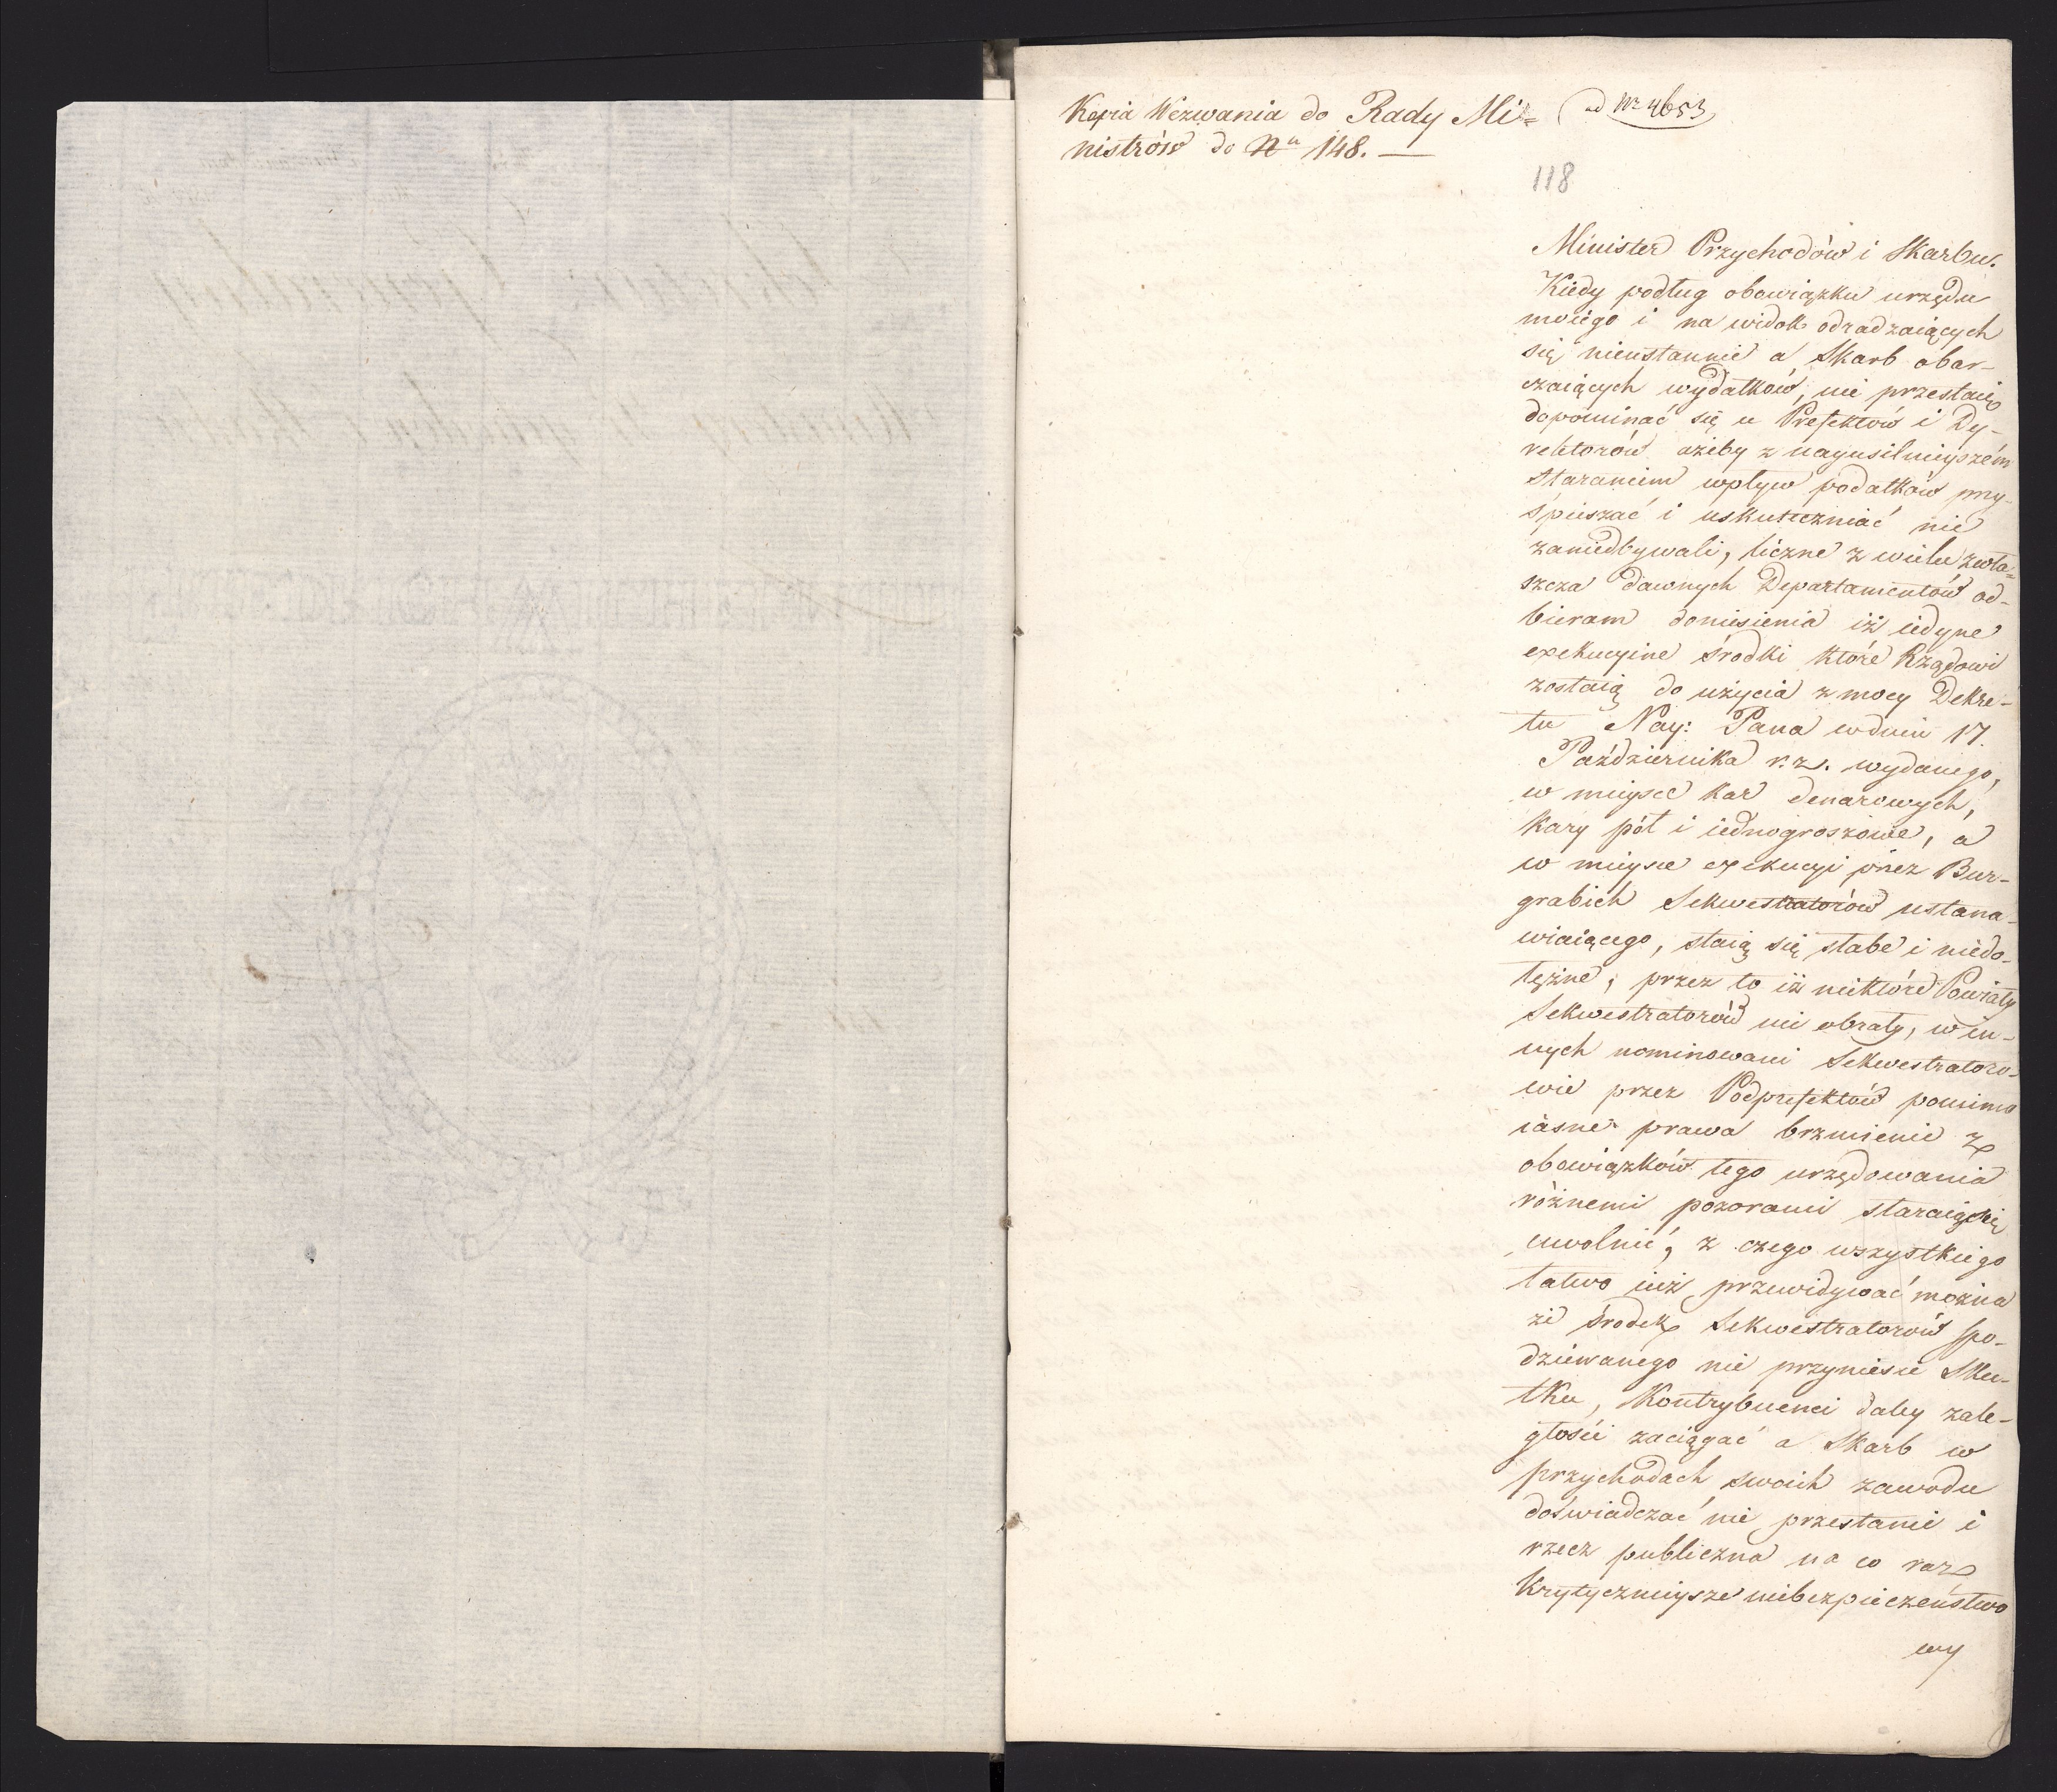 Kopia Wezwania do Rady Mi=
nistrów do Nru 148. —
ad Nr 4653
118
Minister Przychodów i Skarbu.
Kiedy podług obowiązku urzędu
moiego i na widok odradzaiących
się nieustannie a Skarb obar-
czaiących wydatków, nie przestaię
dopominać się u Prefektów i Dy-
rektorów ażeby z nayusilnieyszém
staraniem wpływ podatków przy-
śpieszać i uskuteczniać nie
zaniedbywali, liczne z wielu zwła=
szcza dawnych Departamentów od-
bieram doniesienia iż iedyne
exekucyine środki które Rządowi
zostaią do użycia z mocy Dekre-
tu Nay: Pana w dniu 17.
Października r. z. wydanego,
w mieysce kar denarowych,
kary pół i iednogroszowe, a
w mieysce exekucyi przez Bur-
grabich Sekwestratorów ustana-
wiaiącego, staią się słabe i niedo-
łężne, przez to iż niektóre Powiaty
Sekwestratorów nie obrały, w in-
nych nominowani Sekwestratoro-
wie przez Podprefektów pomimo
iasne prawa brzmienie z
obowiązków tego urzędowania
różnemi pozorami staraią się
uwolnić, z czego wszystkiego
łatwo iuż przewidywać można
że środek Sekwestratorów spo-
dziewanego nie przyniesie sku-
tku, Kontrybuenci daley zale-
głości zaciągać a Skarb w
przychodach swoich zawodu
doświadczać nie przestanie i
rzecz publiczna na co raz
krytycznieysze niebezpieczeństwo
wy